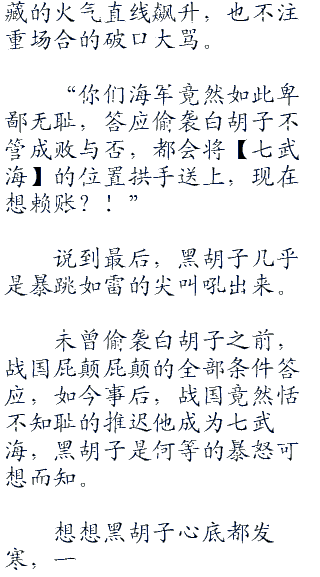 藏的火气直线飙升，也不注
重场合的破口大骂。
“你们海军竟然如此卑
鄙无耻，答应偷袭白胡子不
管成败与否，都会将【七武
海】的位置拱手送上，现在
想赖账？！”
说到最后，黑胡子几乎
是暴跳如雷的尖叫吼出来。
未曾偷袭白胡子之前，
战国屁颠屁颠的全部条件答
应，如今事后，战国竟然恬
不知耻的推迟他成为七武
海，黑胡子是何等的暴怒可
想而知。
想想黑胡子心底都发
寒，一